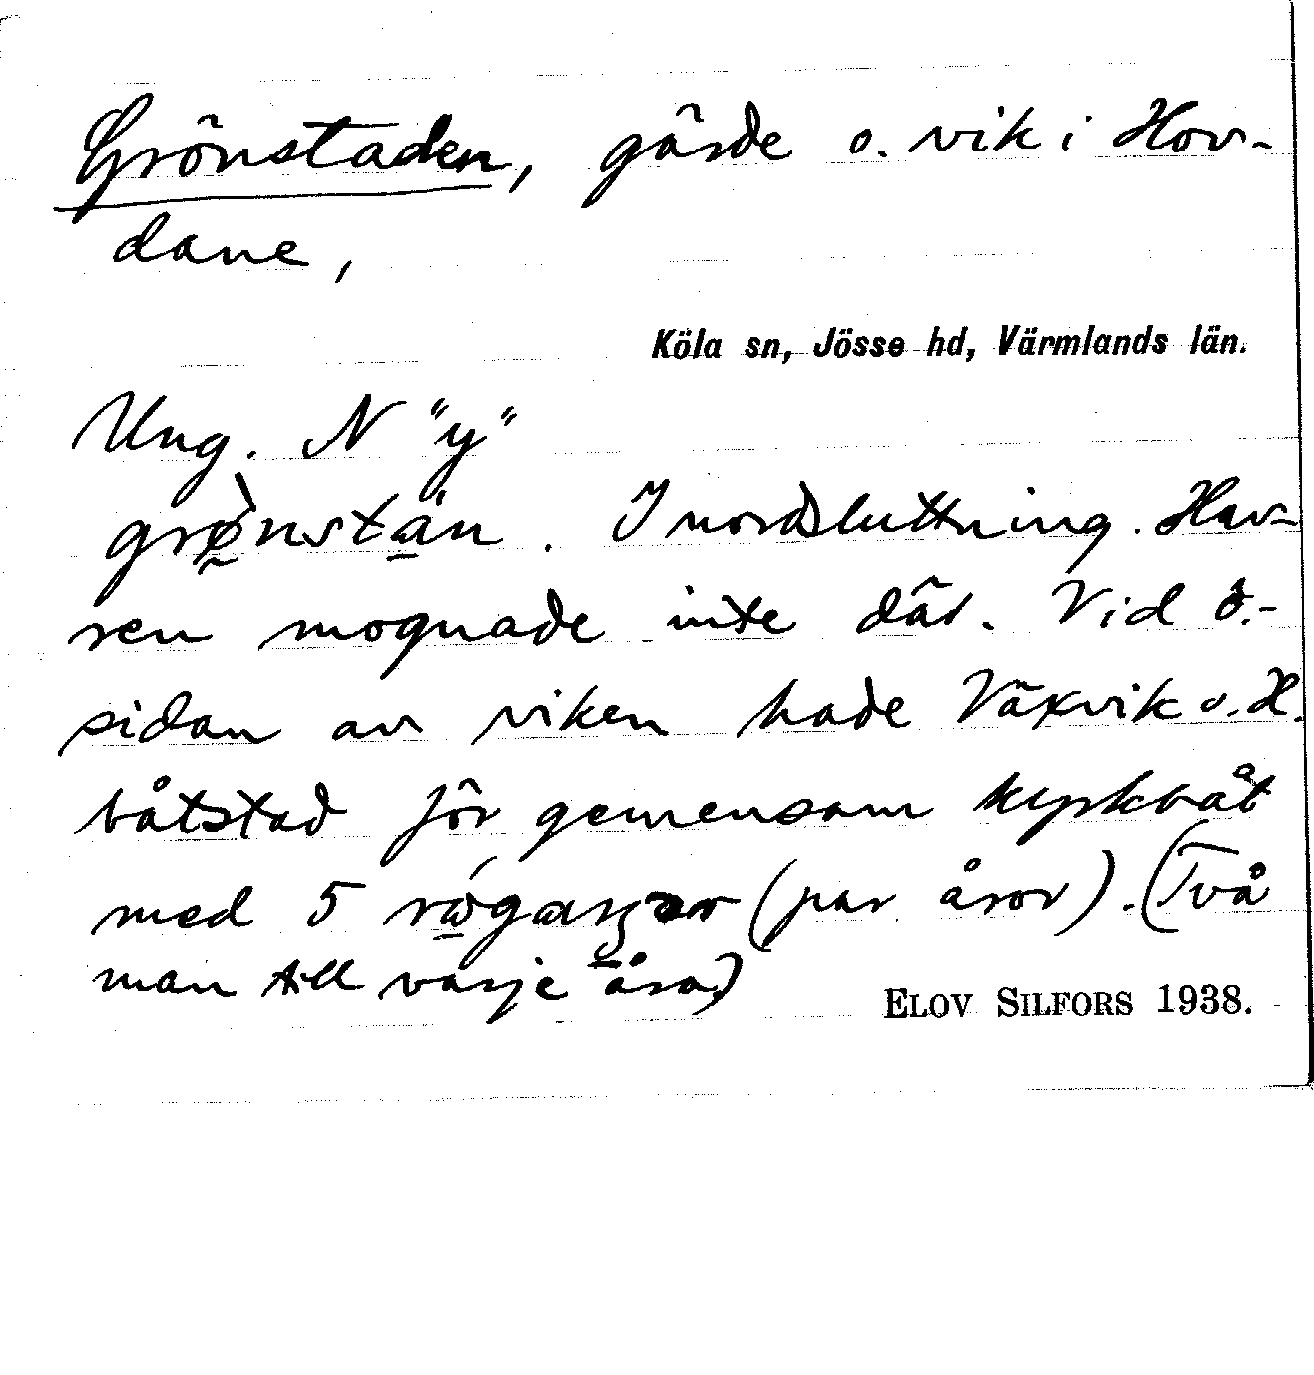 Grönstaden, gärde o. vik i Hov-
dane,
Köla sn, Jösse hd, Värmlands län.
Ung. N "y"
grø̀nstän. I nordsluttning. Hav-
ren mognade inte där. Vid ö.-
sidan av viken hade Växvik o. H.
båtstad för gemensam kyrkbåt
med 5 (par åror). (Två
man till varje åra.)
ELOV SILFORS 1938.